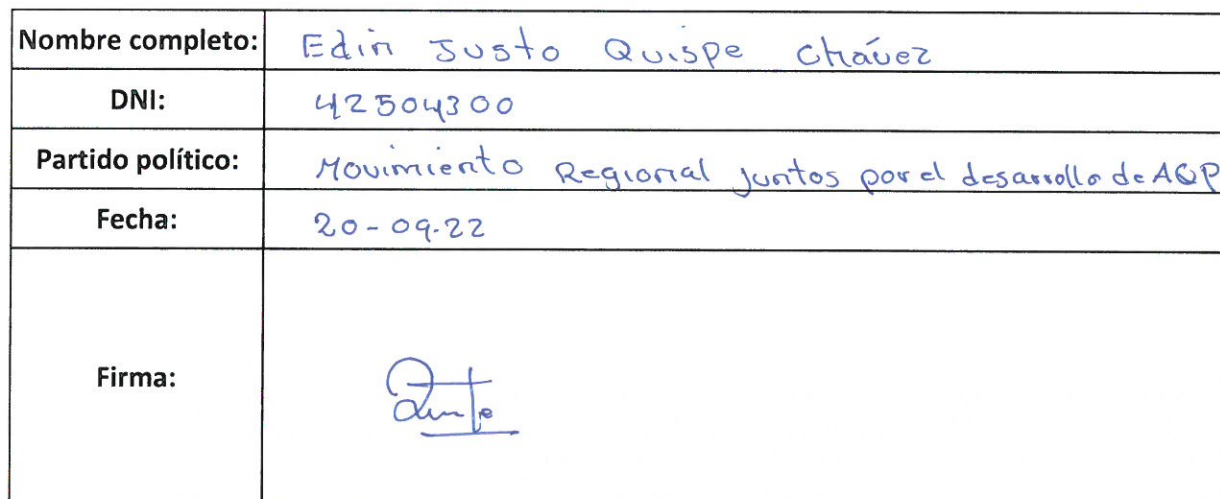 Nombre completo: Edin Justo Quispe Chávez
DNI: 42504300
Partido político: Movimiento Regional juntos por el desarrollo de AQP
Fecha: 20-09-22
Firma: